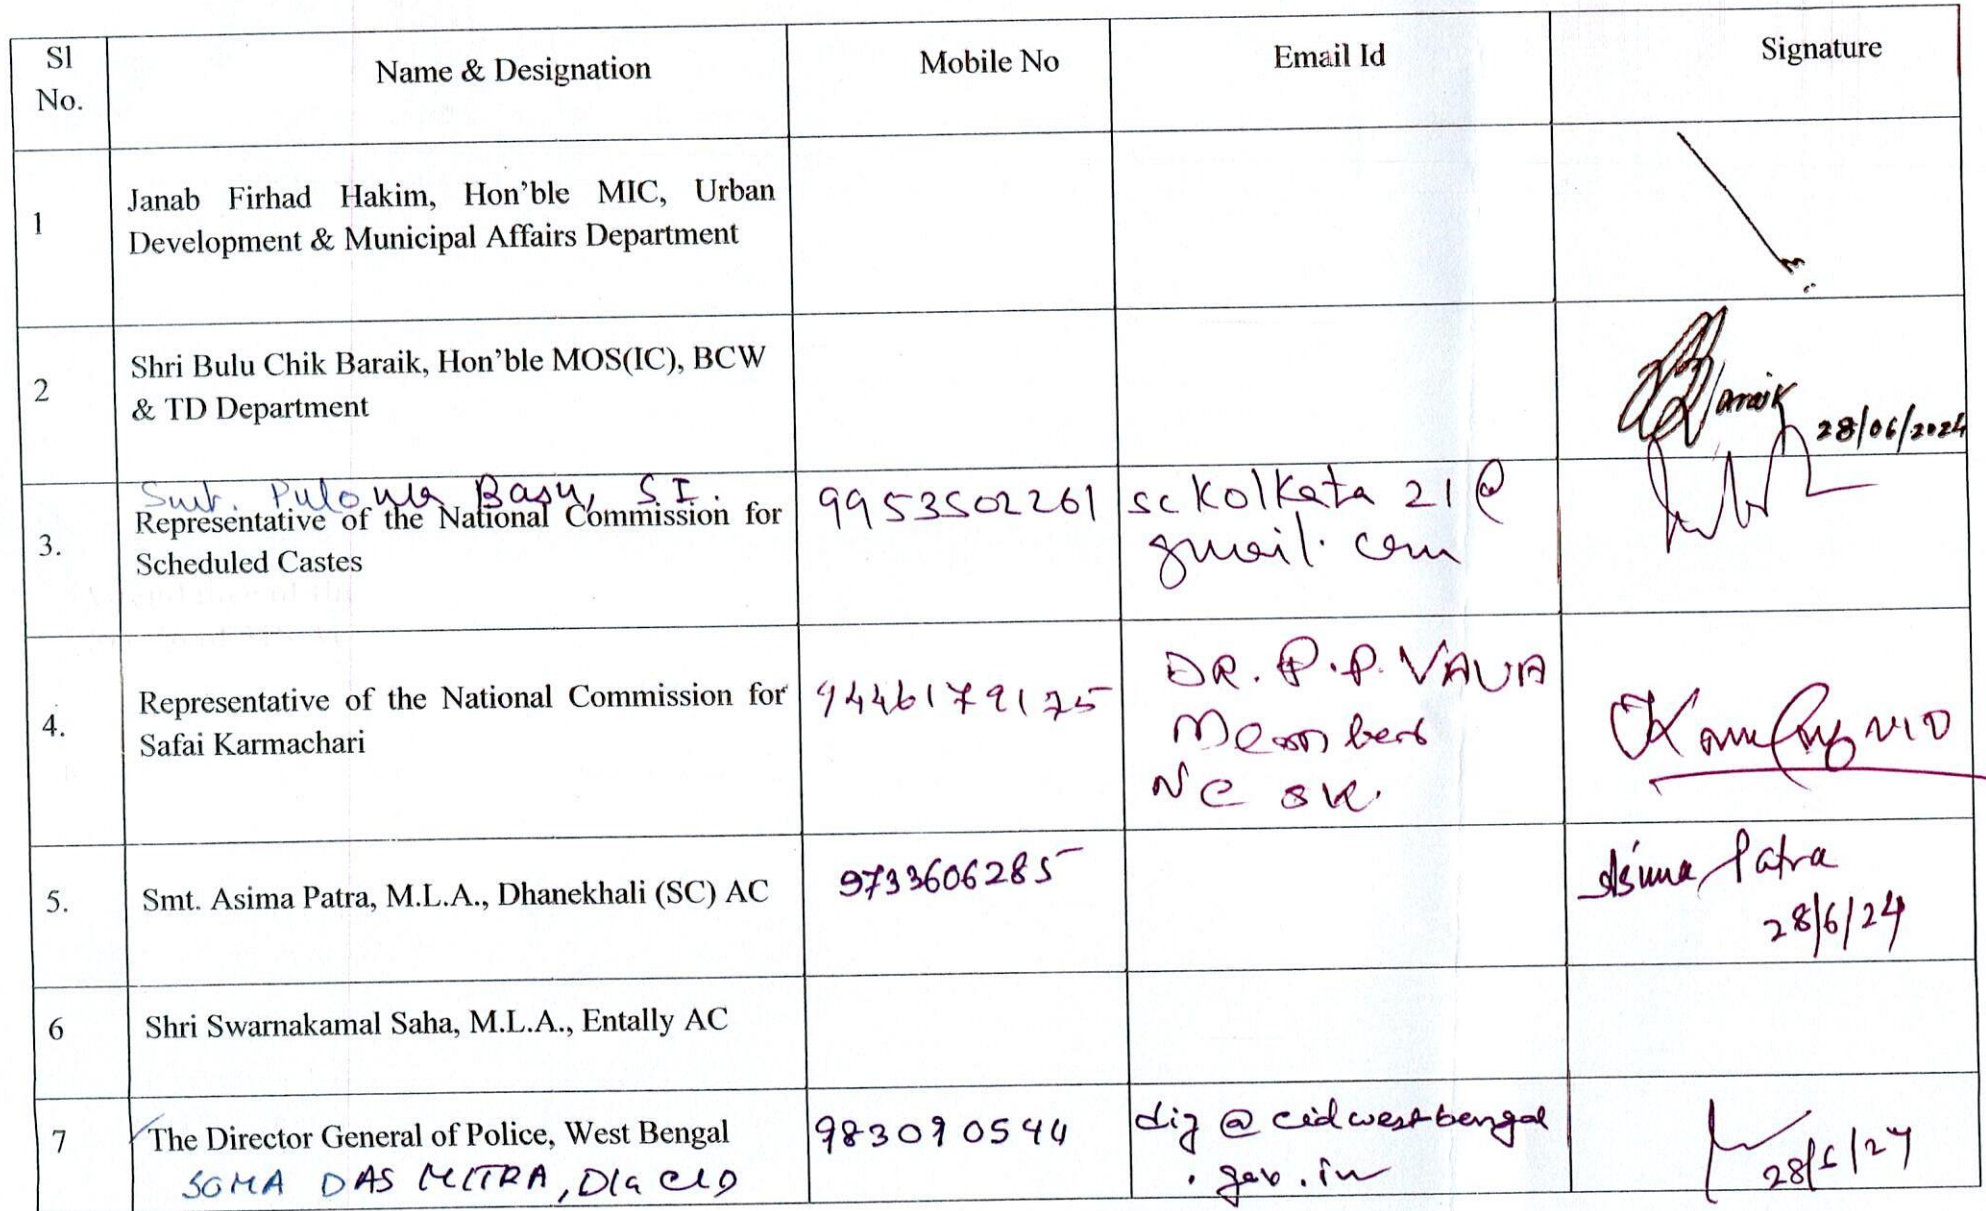 Sl No.
Name & Designation
Mobile No
Email Id
Signature
1
Janab Firhad Hakim, Hon'ble MIC, Urban
Development & Municipal Affairs Department
2
Shri Bulu Chik Baraik, Hon'ble MOS(IC), BCW
& TD Department
Baraik
28/06/2024
3.
Smt. Puloma Basu, S.I.
Representative of the National Commission for
Scheduled Castes
9953502261
sckolkata21@
gmail.com
4.
Representative of the National Commission for
Safai Karmachari
9446179175
DR. P.P. VAVA
Member
NCSK.
5.
Smt. Asima Patra, M.L.A., Dhanekhali (SC) AC
9733606285
Asima Patra
28/6/24
6
Shri Swarnakamal Saha, M.L.A., Entally AC
7
The Director General of Police, West Bengal
SOMA DAS MITRA, DIG CID
983090544
dig@cidwestbengal
.gov.in
28/6/24